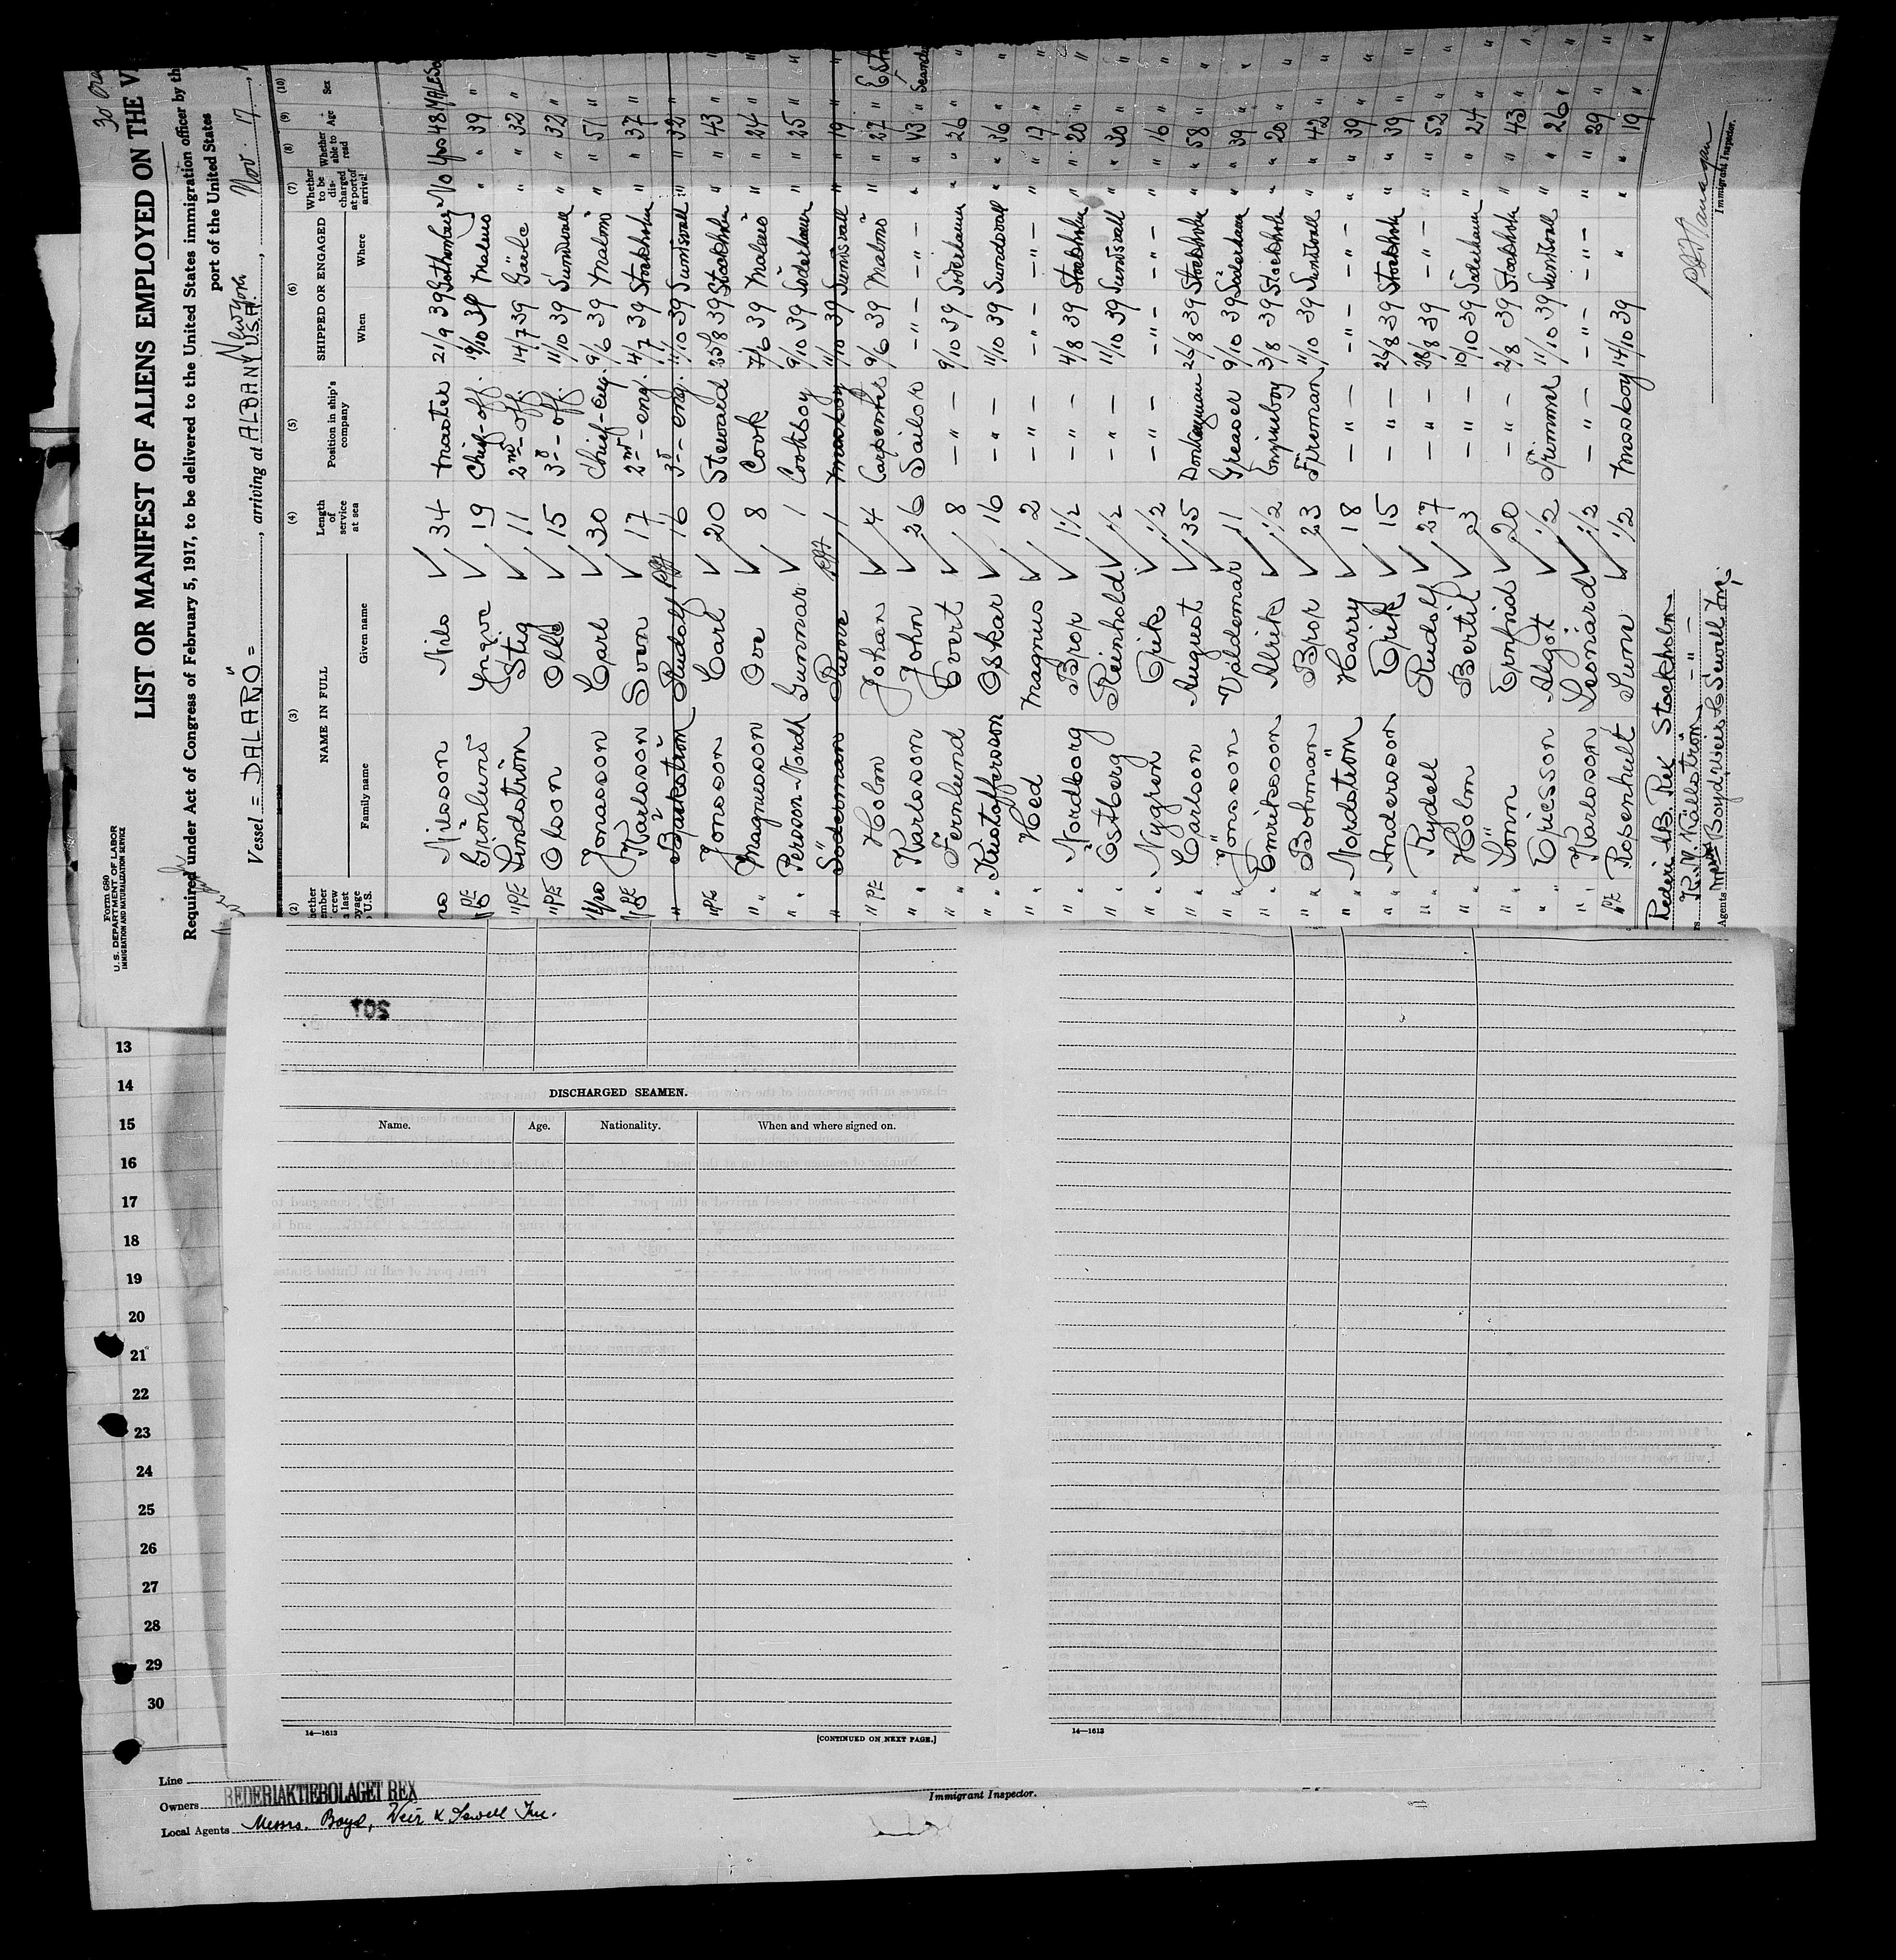 30
Form 680
U.S. DEPARTMENT OF LABOR
IMMIGRATION AND NATURALIZATION SERVICE
LIST OR MANIFEST OF ALIENS EMPLOYED ON THE V
Required under Act of Congress of February 5, 1917, to be delivered to the United States immigration officer by th
port of the United States
New York
Vessel = DALARÖ =, arriving at ALBANY U.S.A., Nov. 17, 1
(2) (3) (4) (5) (6) (7) (8) (9) (10)
NAME IN FULL Length of service at sea Position in ship's company SHIPPED OR ENGAGED Whether to be discharged at port of arrival Whether able to read Age Sex
Family name Given name When Where
Nilsson Nils 34 Master 21/9 39 Gothenburg No Yes 48 MALE
" PE Grönlund Yngve 19 Chief-off. 19/10 39 Malmö " " 39 "
" PE Lindström Stig 11 2nd-off. 14/7 39 Gävle " " 32 "
" PE Olson Olle 15 3d-off. 11/10 39 Sundsvall " " 32 "
Yes Jonasson Carl 30 Chief-eng. 9/6 39 Malmö " " 51 "
" PE Karlsson Sven 17 2nd-eng. 4/7 39 Stockholm " " 37 "
" Bäckström Rudolf 16 3d-eng. 11/10 39 Sundsvall " " 32 "
" PE Jonsson Carl 20 Steward 25/8 39 Stockholm " " 43 "
" " Magnusson Ove 8 Cook 7/6 39 Malmö " " 24 "
" " Person-Nordh Gunnar 1 Cooksboy 9/10 39 Söderhamn " " 25 "
" Söderman Rune 1 Messboy 11/10 39 Sundsvall " " 19 "
" PE Holm Johan 4 Carpenter 9/6 39 Malmö " " 27 "
" " Karlsson John 26 Sailor - " - - " - " " 43 "
" " Fernlund Evert 8 - " - 9/10 39 Söderhamn " " 26 "
" " Kristoffersson Oskar 16 - " - 11/10 39 Sundsvall " " 36 "
" " Hed Magnus 2 - " - - " - - " - " " 17 "
" " Nordborg Bror 1 1/2 - " - 4/8 39 Stockholm " " 20 "
" " Östberg Reinhold 1/2 - " - 11/10 39 Sundsvall " " 30 "
" " Nygren Erik 1/2 - " - - " - - " - " " 16 "
" " Carlson August 35 Donkeyman 26/8 39 Stockholm " " 58 "
" " Jönsson Valdemar 11 Greaser 9/10 39 Söderhamn " " 39 "
" " Emriksson Alrik 1 1/2 Engineboy 3/8 39 Stockholm " " 20 "
" " Bohman Bror 23 Fireman 11/10 39 Sundsvall " " 42 "
" " Nordström Harry 18 - " - - " - - " - " " 39 "
" " Andersson Erik 15 - " - 26/8 39 Stockholm " " 39 "
" " Rydell Rudolf 27 - " - 28/8 39 - " - " " 52 "
" " Holm Bertil 3 - " - 10/10 39 Söderhamn " " 24 "
" " Lönn Ernfrid 20 - " - 2/8 39 Stockholm " " 43 "
" " Ericsson Algot 1/2 Trimmer 11/10 39 Sundsvall " " 26 "
" " Karlsson Leonard 1/2 - " - - " - - " - " " 29 "
" PE Rosenhult Sune 1/2 Messboy 14/10 39 " " " 19 "
Rederi AB. Rex Stockholm
- " -
Agents Messrs Boyd, Weir & Sewell Inc.
Immigrant Inspector.
201
DISCHARGED SEAMEN.
Name. Age. Nationality. When and where signed on.
14—1613
[CONTINUED ON NEXT PAGE.]
14—1613
13
14
15
16
17
18
19
20
21
22
23
24
25
26
27
28
29
30
Line
Owners REDERIAKTIEBOLAGET REX
Local Agents Messrs. Boyd, Weir & Sewell Inc.
Immigrant Inspector.